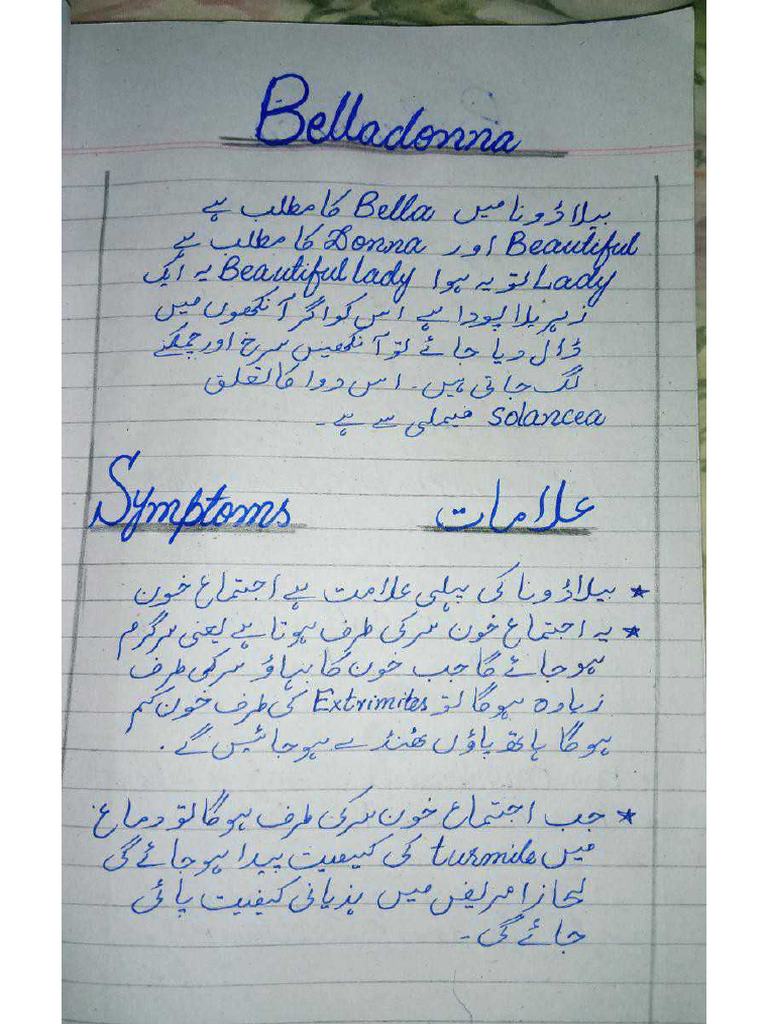 Belladonna
بیلاڈونا میں Bella کا مطلب ہے
Beautiful اور Donna کا مطلب ہے
Lady تو یہ ہوا Beautiful lady یہ ایک
زہریلا پودا ہے اس کو اگر آنکھوں میں
ڈال دیا جائے تو آنکھیں سرخ اور چمکنے
لگ جاتی ہیں۔ اس دوا کا تعلق
solancea فیملی سے ہے۔
Symptoms علامات
* بیلاڈونا کی پہلی علامت ہے اجتماع خون
* یہ اجتماع خون سر کی طرف ہوتا ہے یعنی سر گرم
ہو جائے گا جب خون کا بہاؤ سر کی طرف
زیادہ ہوگا تو Extrimites کی طرف خون کم
ہوگا ہاتھ پاؤں ٹھنڈے ہو جائیں گے۔
* جب اجتماع خون سر کی طرف ہوگا تو دماغ
میں turmile کی کیفیت پیدا ہو جائے گی
لحازا مریض میں ہذیانی کیفیت پائی
جائے گی۔